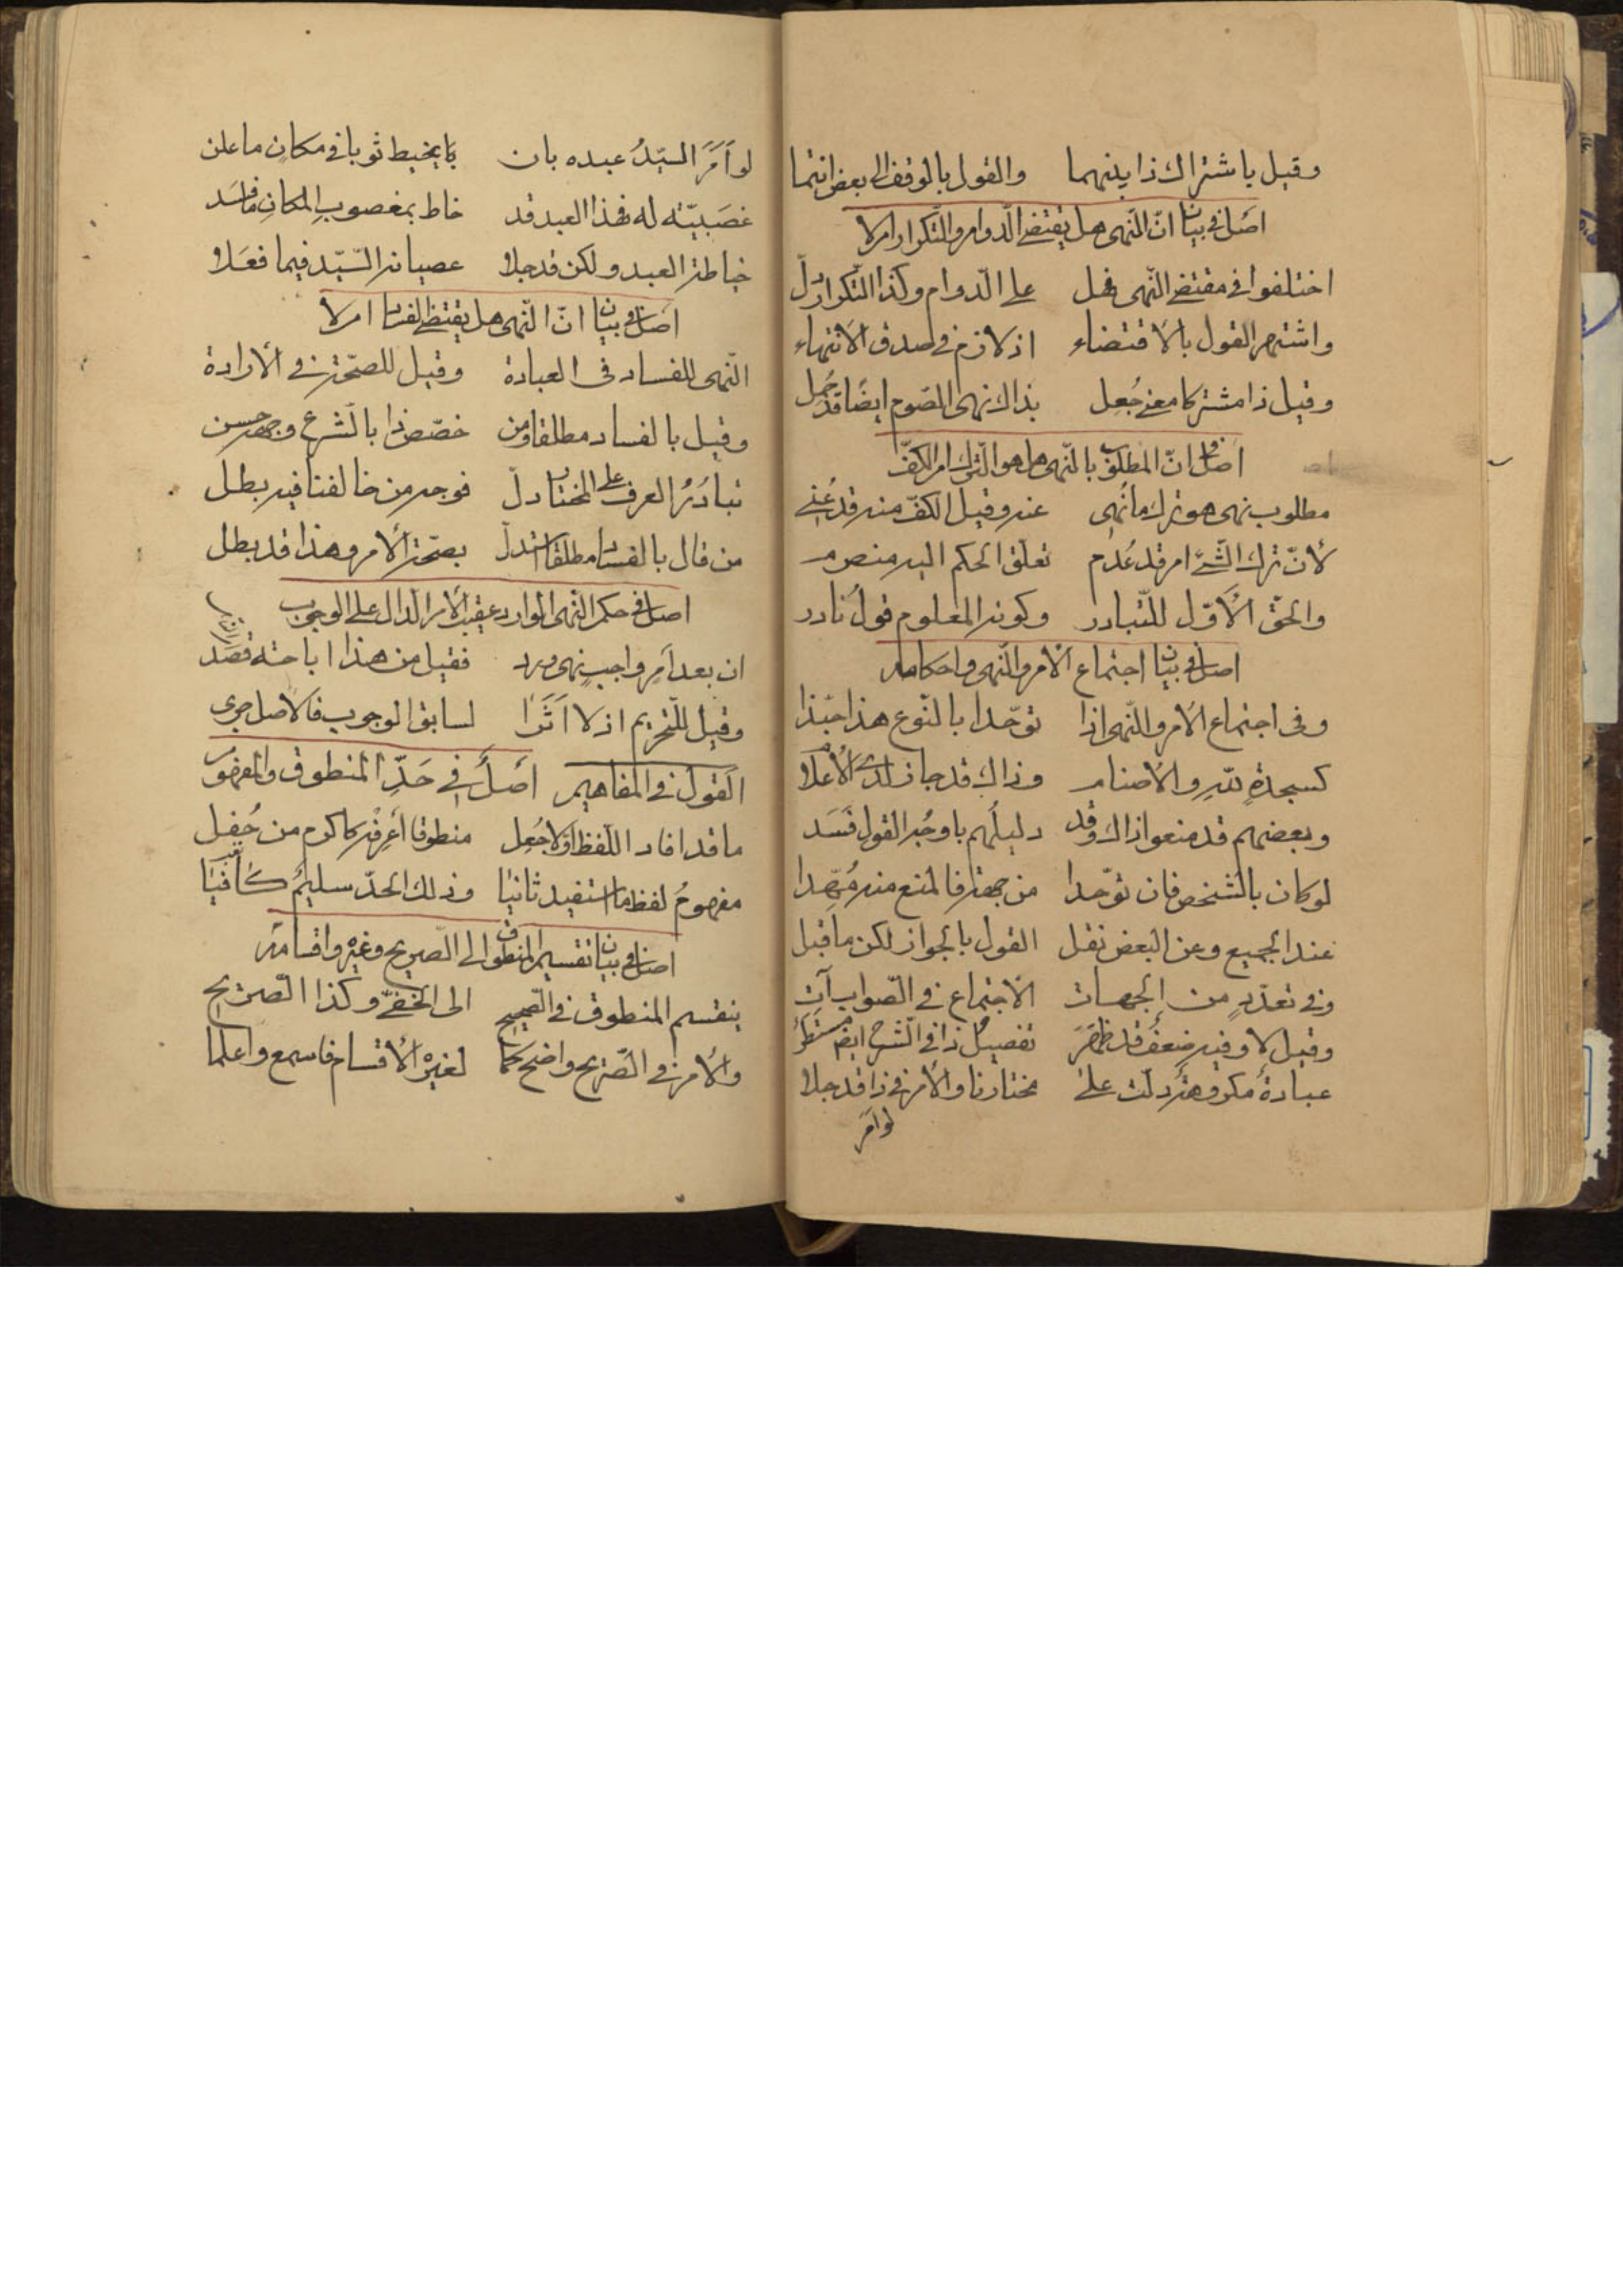 وقيل باشتراك ذا بينهما والقول بالوقف الى بعض انتما
اصل فى بيان انّ النّهى هل يقتضى الدّوام والتّكرار ام لا
اختلفوا فى مقتضى النّهى فهل على الدّوام وكذا التّكرار دلّ
واشتهر القول بالاقتضاء اذ لازم فى صدق الانتهاء
وقيل ذا مشتركا معنى جُعِل بذاك نهى الصّوم ايضًا قد حُمِل
اصل فى انّ المطلوب بالنّهى هل هو التّرك ام الكفّ
مطلوب نهى هو ترك ما نُهِى عنه وقيل الكفّ منه قد عُنِى
لأنّ ترك الشّئ امر قد عُدِم تعلّق الحكم اليه منصرم
والحقّ الأوّل للتّبادر وكونه المعلوم قولٌ نادر
اصل فى بيان اجتماع الأمر والنّهى واحكامه
وفى اجتماع الامر والنّهى اذا توحّدا بالنّوع هذا حبّذا
كسجدةٍ للهِ والاصنام وذاك قد جاز لدى الأعلام
وبعضهم قد منعوا ذاك وقد دليلُهم باوجُه القول فَسَد
لو كان بالشّخص فان توحّدا من جهة فالمنع منه مُهّدا
عند الجميع وعن البعض نقل القول بالجواز لكن ما قبل
وفى تعدّدٍ من الجهات الاجتماع فى الصّواب آتِ
وقيل لا وفيه ضعفٌ قد ظَهَرَ تفصيلُ ذا فى الشّرح ايضًا مستطر
عبادةٌ مكروهةٌ دلّت على مختارنا والأمر فى ذا قد جلا
لو امر
لو اَمَرَ السيّدُ عبده بان يخيط ثوبا فى مكانٍ ما علن
غصبيّته له فهذا العبد قد خاط بمغصوبِ المكانِ ما فسَد
خياطة العبد ولكن قد جلا عصيانه السّيّد فيما فعَلا
اصل فى بيان انّ النّهى هل يقتضى الفساد ام لا
النّهى للفساد فى العبادة وقيل للصحّة فى الأرادة
وقيل بالفساد مطلقا ومن خصّص ذا بالشّرع وجهه حسن
تبادُرُ العرف على المختار دلّ فوجه من خالفنا فيه بطل
من قال بالفساد مطلقا استدلّ بصحّة الأمر وهذا قد بطل
اصل فى حكم النّهى الوارد عقيب الأمر الدال على الوجوب
ان بعد اَمرٍ واجبٍ نهى ورد فقيل من هذا اباحته قصَد
وقيل للتّحريم اذ لا اَثَرَا لسابق الوجوب فالاصل جرى
القول فى المفاهيم اصلٌ فى حَدِّ المنطوق والمفهوم
ما قد افاد اللّفظ اوّلا جُعِل منطوقا أعرفه كاكرم من حُفِل
مفهومُ لفظ ما استفيد ثانيا وذلك الحدّ سليمٌ كافيَا
اصل فى بيان تقسيم المنطوق الى الصّريح وغيره واقسامه
ينقسم المنطوق فى الصّحيح الى الخفىّ وكذا الصّريح
والأمر فى الصّريح واضح كما لغيره الأقسام فاسمع واعلما